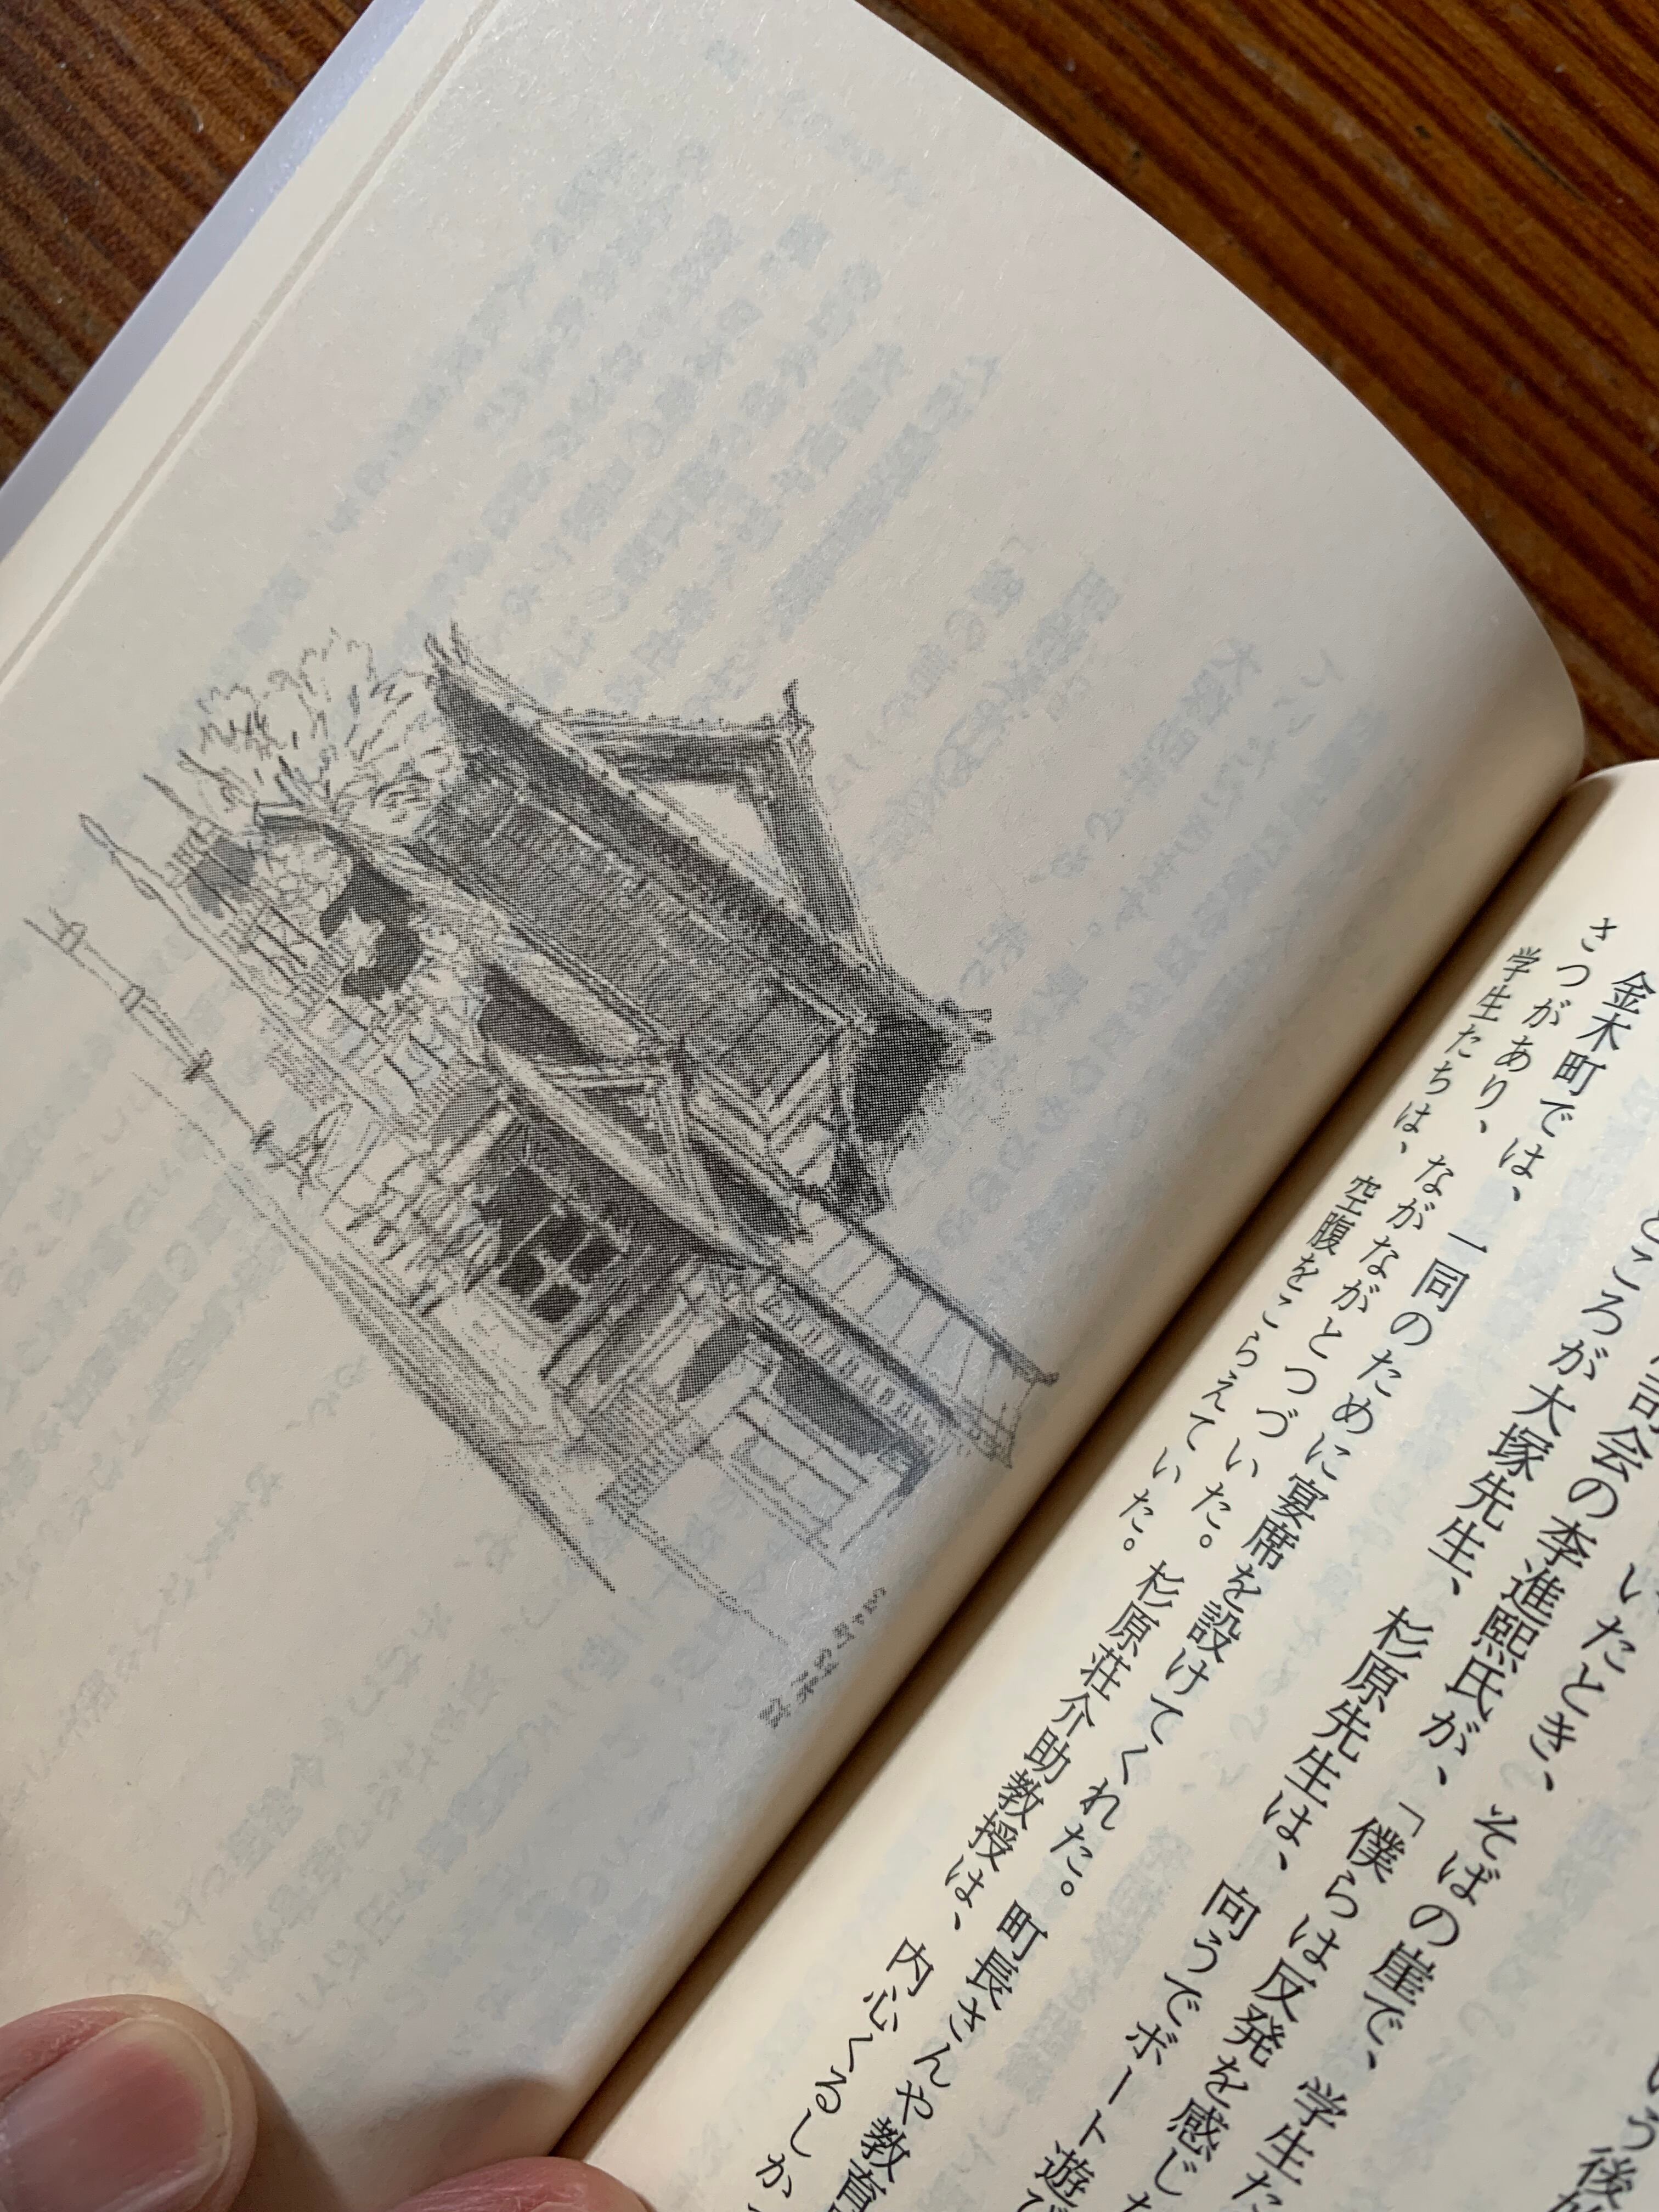 いう後
いたとき、そばの崖で、学生た
会の李進熙氏が、「僕らは反発を感じた
ところが大塚先生、杉原先生は、向うでボート遊び
金木町では、一同のために宴席を設けてくれた。町長さんや教育
さつがあり、ながながとつづいた。
学生たちは、空腹をこらえていた。杉原荘介助教授は、内心くるしか